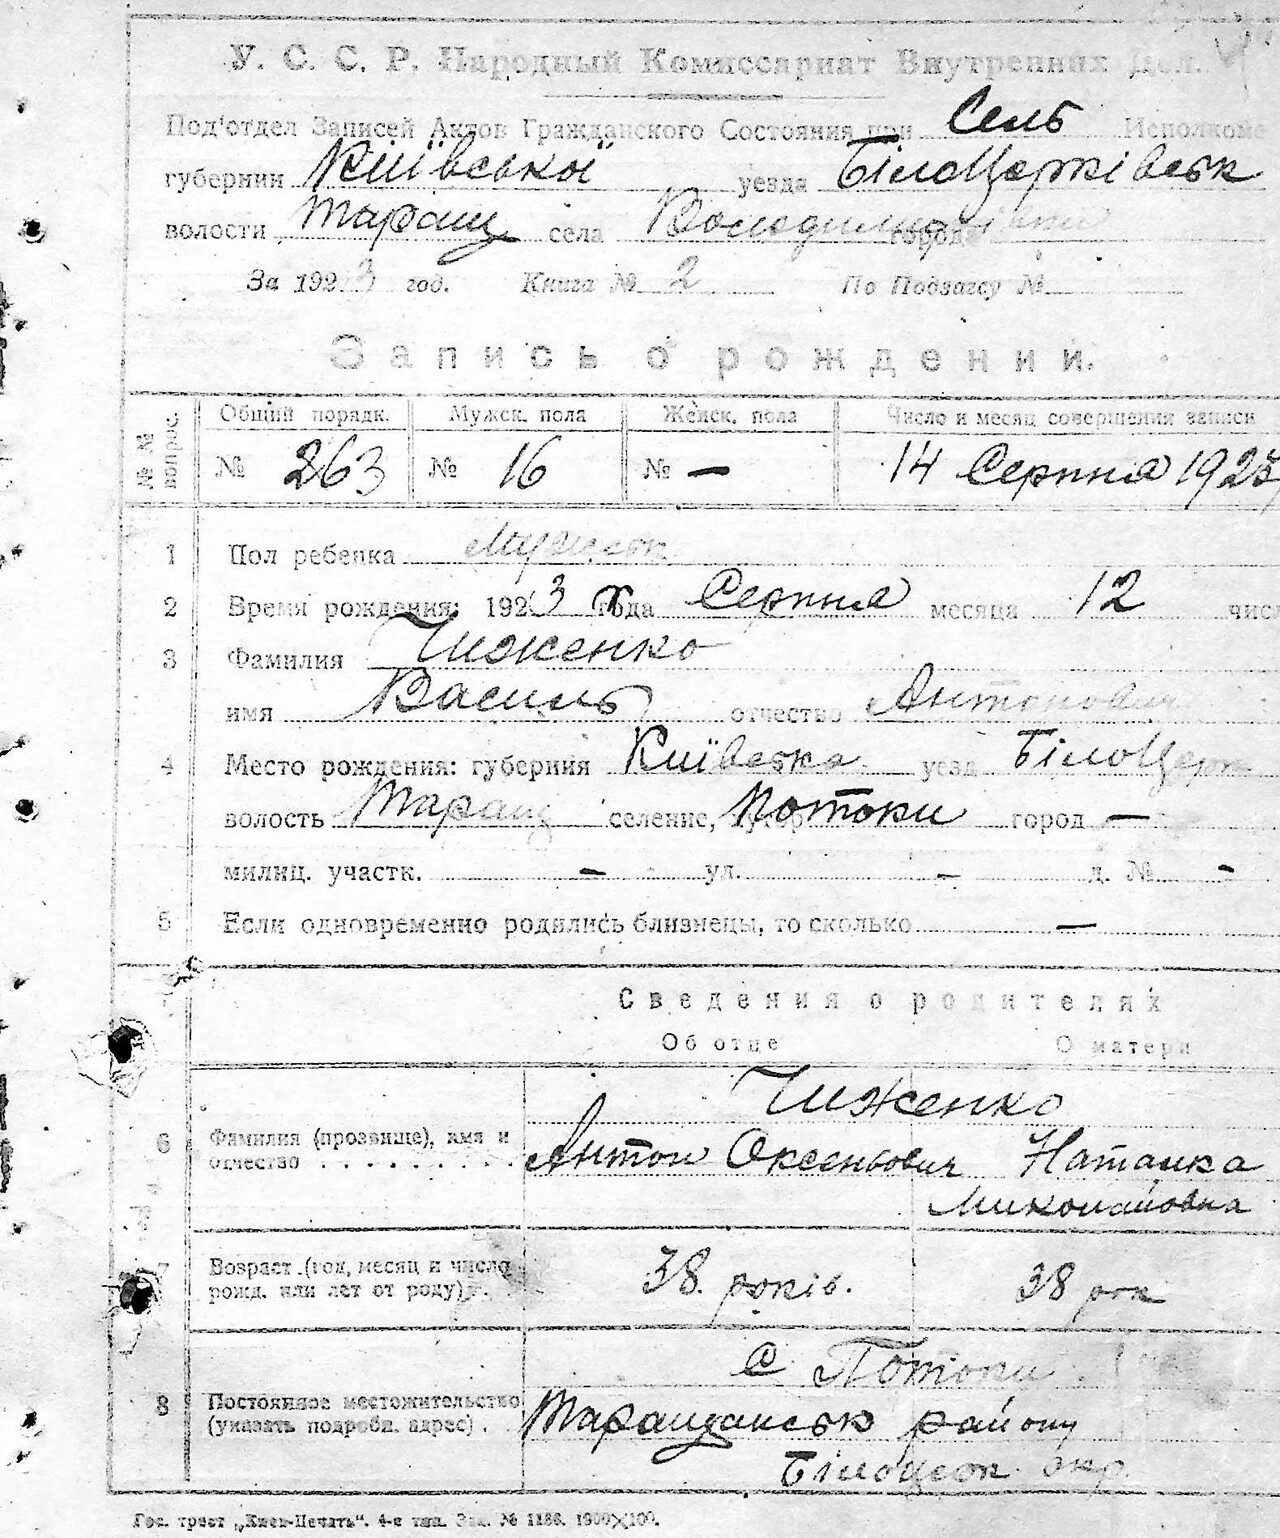 У. С. С. Р. Народный Комиссариат Внутренних Дел.
Под'отдел Записей Актов Гражданского Состояния при Сель Исполкоме
губернии Київської уезда БілоЦерківськ
волости Таращ села города
За 1923 год. Книга № 2 По Подзагсу №
Запись о рождении.
№№ вопрос. Общий порядк. Мужск. пола Женск. пола Число и месяц совершения записи
№ 263 № 16 № — 14 Серпня 1923
1 Пол ребенка Мужеськ
2 Время рождения: 1923 года Серпня месяца 12 числ
3 Фамилия Чиженко
имя Василь отчество Антонович
4 Место рождения: губерния Київська уезд БілоЦерк
волость Таращ селение, хутор Потоки город —
милиц. участк. — ул. — д. № -
5 Если одновременно родились близнецы, то сколько —
Сведения о родителях
Об отце О матери
Чиженко
6 Фамилия (прозвище), имя и
отчество . . . . . . . . . Антон Оксеньович Наталка
Миколаївна
7 Возраст (год, месяц и число
рожд. или лет от роду) . 38 років. 38 рок
с Потоки
8 Постоянное местожительство
(указать подробн. адрес) . Таращанськ району
Білоцерк окр.
Гос. трест „Киев-Печать“. 4-я тип. Зак. № 1186. 1900×100.